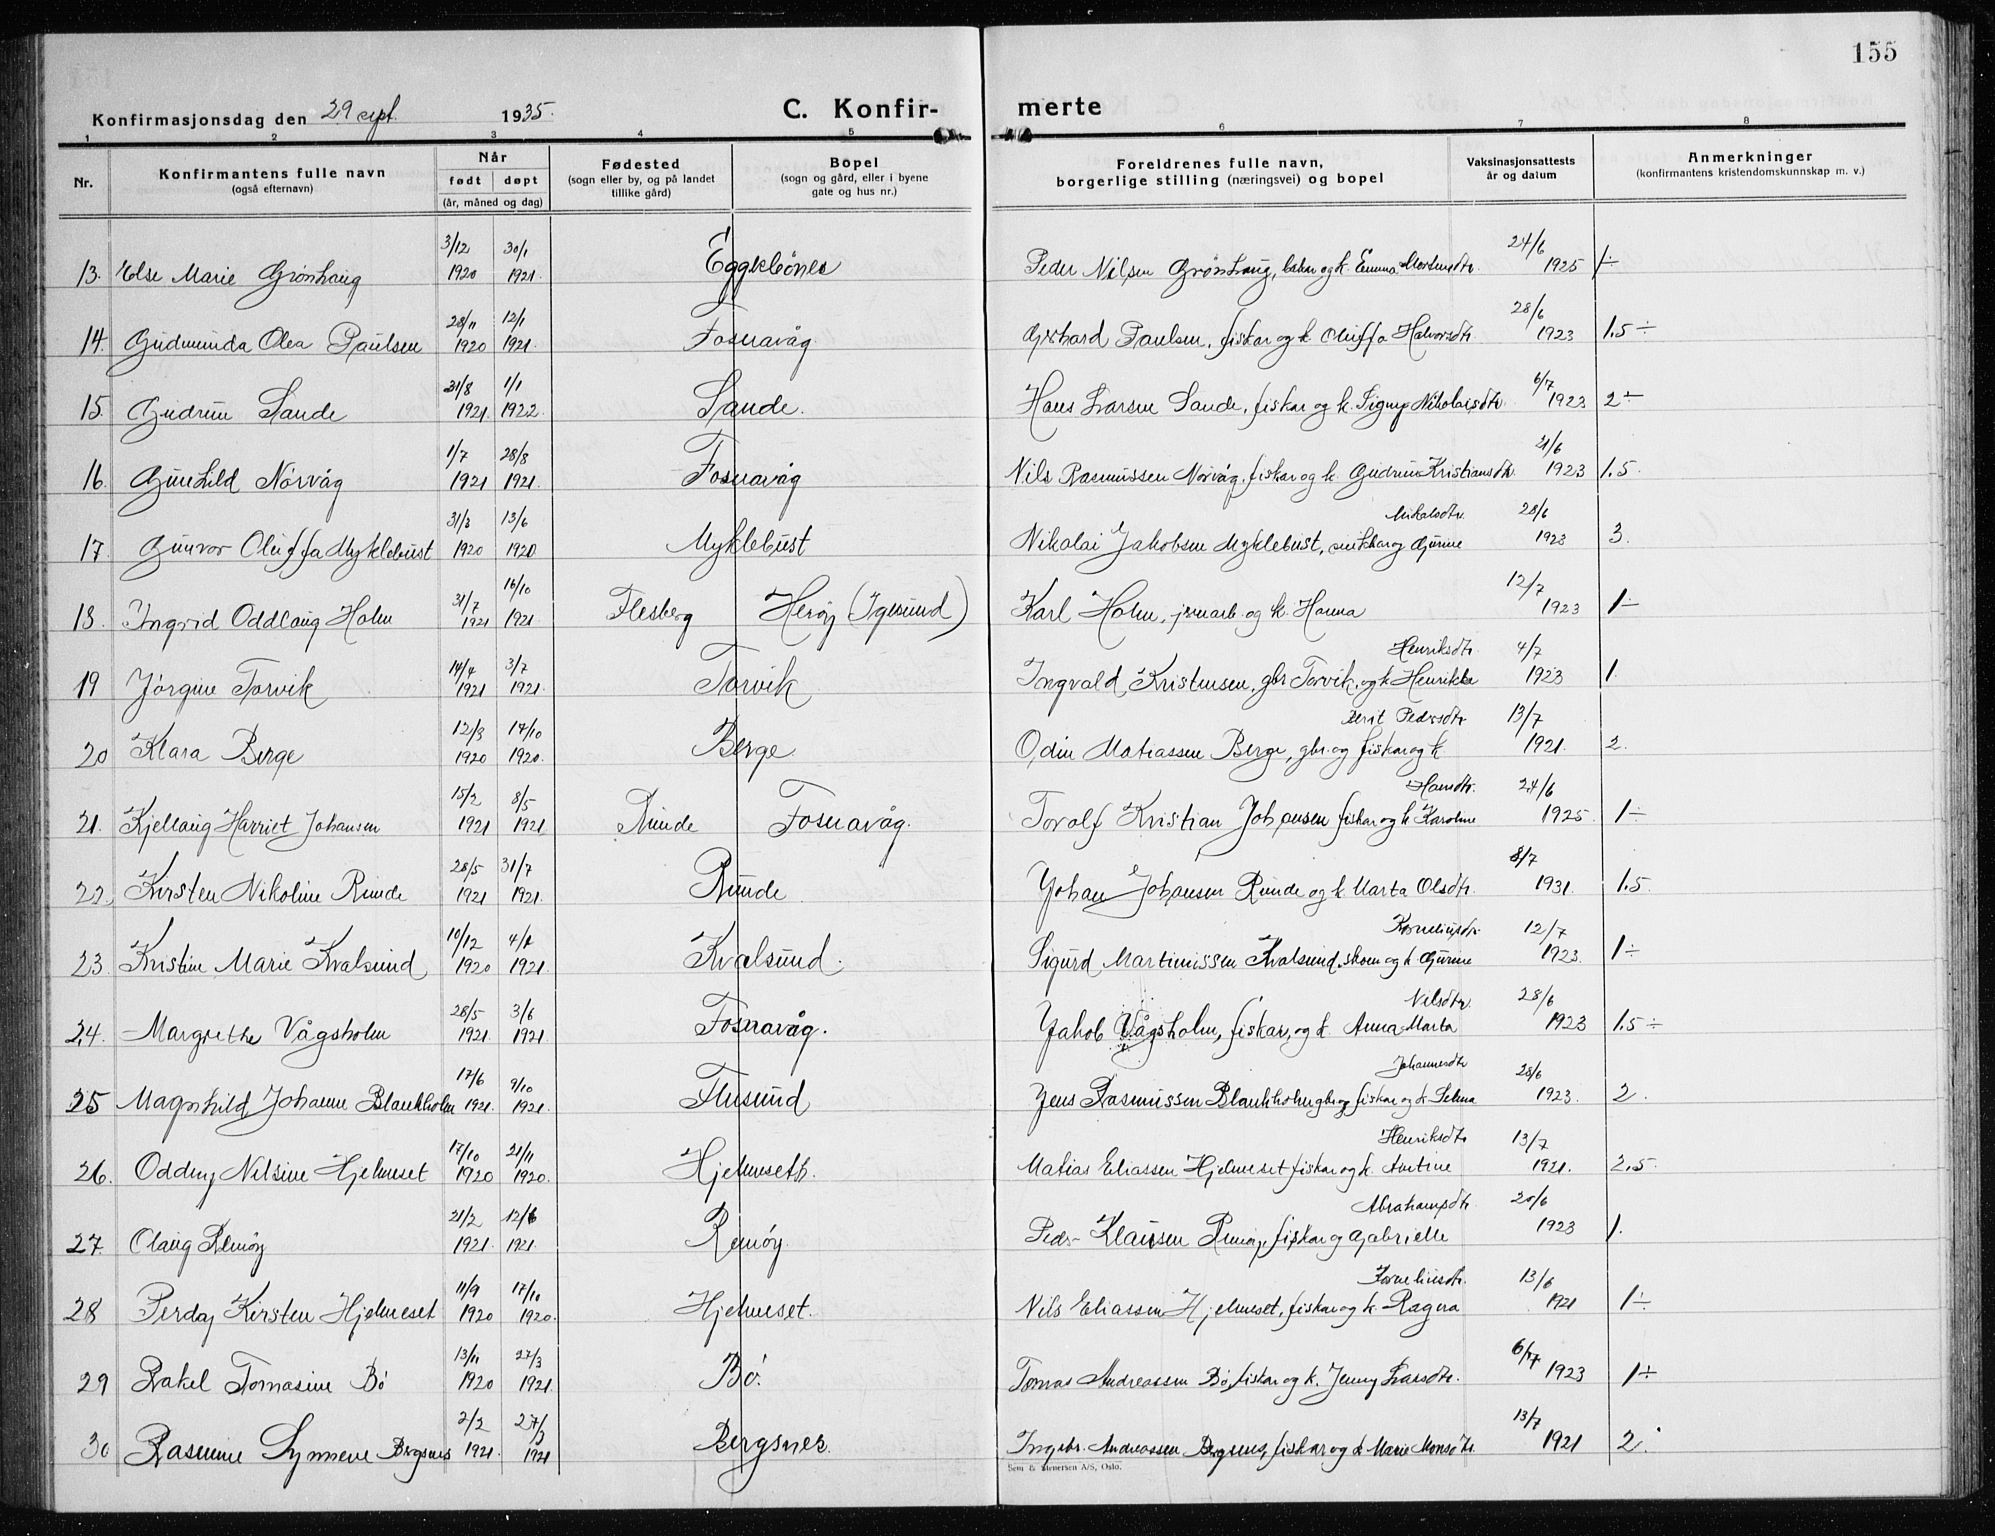 155
Konfirmasjonsdag den 29 sept. 1935.
C. Konfir- merte
1 2 3 4 5 6 7 8
Nr.
Konfirmantens fulle navn
(også efternavn)
Når
født døpt
(år, måned og dag)
Fødested
(sogn eller by, og på landet
tillike gård)
Bopel
(sogn og gård, eller i byene
gate og hus nr.)
Foreldrenes fulle navn,
borgerlige stilling (næringsvei) og bopel
Vaksinasjonsattests
år og datum
Anmerkninger
(konfirmantens kristendomskunnskap m. v.)
3/12 30/1 24/6
13. Else Marie Grönhaug 1920 1921. Eggesbönes Peder Nilsen Grönhaug, bakar og k. Emma Mortensdtr. 1925 1÷
28/11 12/1 28/6
14. Gudmunda Olea Paulsen 1920 1921. Fosnavåg. Gerhard Paulsen, fiskar og k Oluffa Halvorsdtr. 1923 1.5 ÷
31/8 1/1 6/7
15. Gudrun Sande 1921 1922. Sande. Hans Larsen Sande, fiskar og k. Signy Nikolaisdtr. 1923 2÷
1/7 28/8 21/6
16. Gunhild Nörvåg 1921 1921. Fosnavåg Nils Rasmussen Nörvåg, fiskar og k. Gudrun Kristiansdtr. 1923 1.5.
31/3 13/6 Mikalsdtr. 28/6
17. Gunvor Oluffa Myklebust 1920 1920 Myklebust Nikolai Jakobsen Myklebust, snikkar og Gurine 1923 3.
31/7 16/10 12/7
18. Ingrid Oddlaug Holm 1921 1921. Flesberg Heröy (Igesund) Karl Holm, jernarb. og k. Hanna 1923 1÷
14/4 3/7 Henriksdtr. 4/7
19 Jörgine Torvik 1921 1921. Torvik Ingvald Kristensen, gbr Torvik, og k Henrikke 1923 1.
12/3 17/10 Berit Pedersdtr 13/7
20 Klara Berge 1920 1920. Berge Odin Matiassen Berge, gbr. og fiskar og k 1921. 2.
15/2 8/5 Hansdtr. 24/6
21. Kjellaug Harriet Johansen 1921 1921 Runde Fosnavåg. Torolf Kristian Johansen fiskar og k Karoline 1925. 1÷
28/5 31/7 8/7
22. Kirsten Nikoline Runde 1921 1921. Runde Johan Johansen Runde og k Marta Olsdtr. 1931. 1.5.
10/12 4/1 Korneliusdtr 12/7
23. Kristine Marie Kvalsund 1920 1921. Kvalsund. Sigurd Martinussen Kvalsund, skom og k Gurine 1923. 1÷
28/5 3/6 Nilsdtr 28/6
24. Margrethe Vågsholm 1921. 1921. Fosnavåg. Jakob Vågsholm, fiskar, og k. Anna Marta 1923 1.5 ÷
17/6 9/10 Johannesdtr 28/6
25 Magnhild Johanne Blankholm 1921. 1921. Flusund Jens Rasmussen Blankholm gbr og fiskar og k Selma 1923. 2.
17/10 21/11 Henriksdtr 13/7
26. Oddny Nilsine Hjelmeset 1920 1920. Hjelmeseth. Matias Eliassen Hjelmeset fiskar og k. Antine 1921. 2.5.
21/2 12/6 Abrahamsdtr. 20/6
27. Olaug Remöy 1921. 1921. Remöy. Peder Klausen Remöy, fiskar og Gabrielle 1923 1.
11/9 17/10 Korneliusdtr. 13/6
28 Perday Kirsten Hjelmeset 1920 1920. Hjelmeset. Nils Eliassen Hjelmeset, fiskar og k. Ragna 1921 1÷
13/11 27/3 6/7
29 Rakel Tomasine Bö 1920 1921. Bö. Tomas Andreassen Bö, fiskar og k. Jenny Larsdtr. 1923 1÷
2/2 27/3 13/7
30 Rasmine Synneve Bergsnes 1921. 1921 Bergsnes. Ingebr. Andreassen Bergsnes, fiskar og k Marie Monsdtr. 1921 2.
Sem & Stenersen A/S, Oslo.